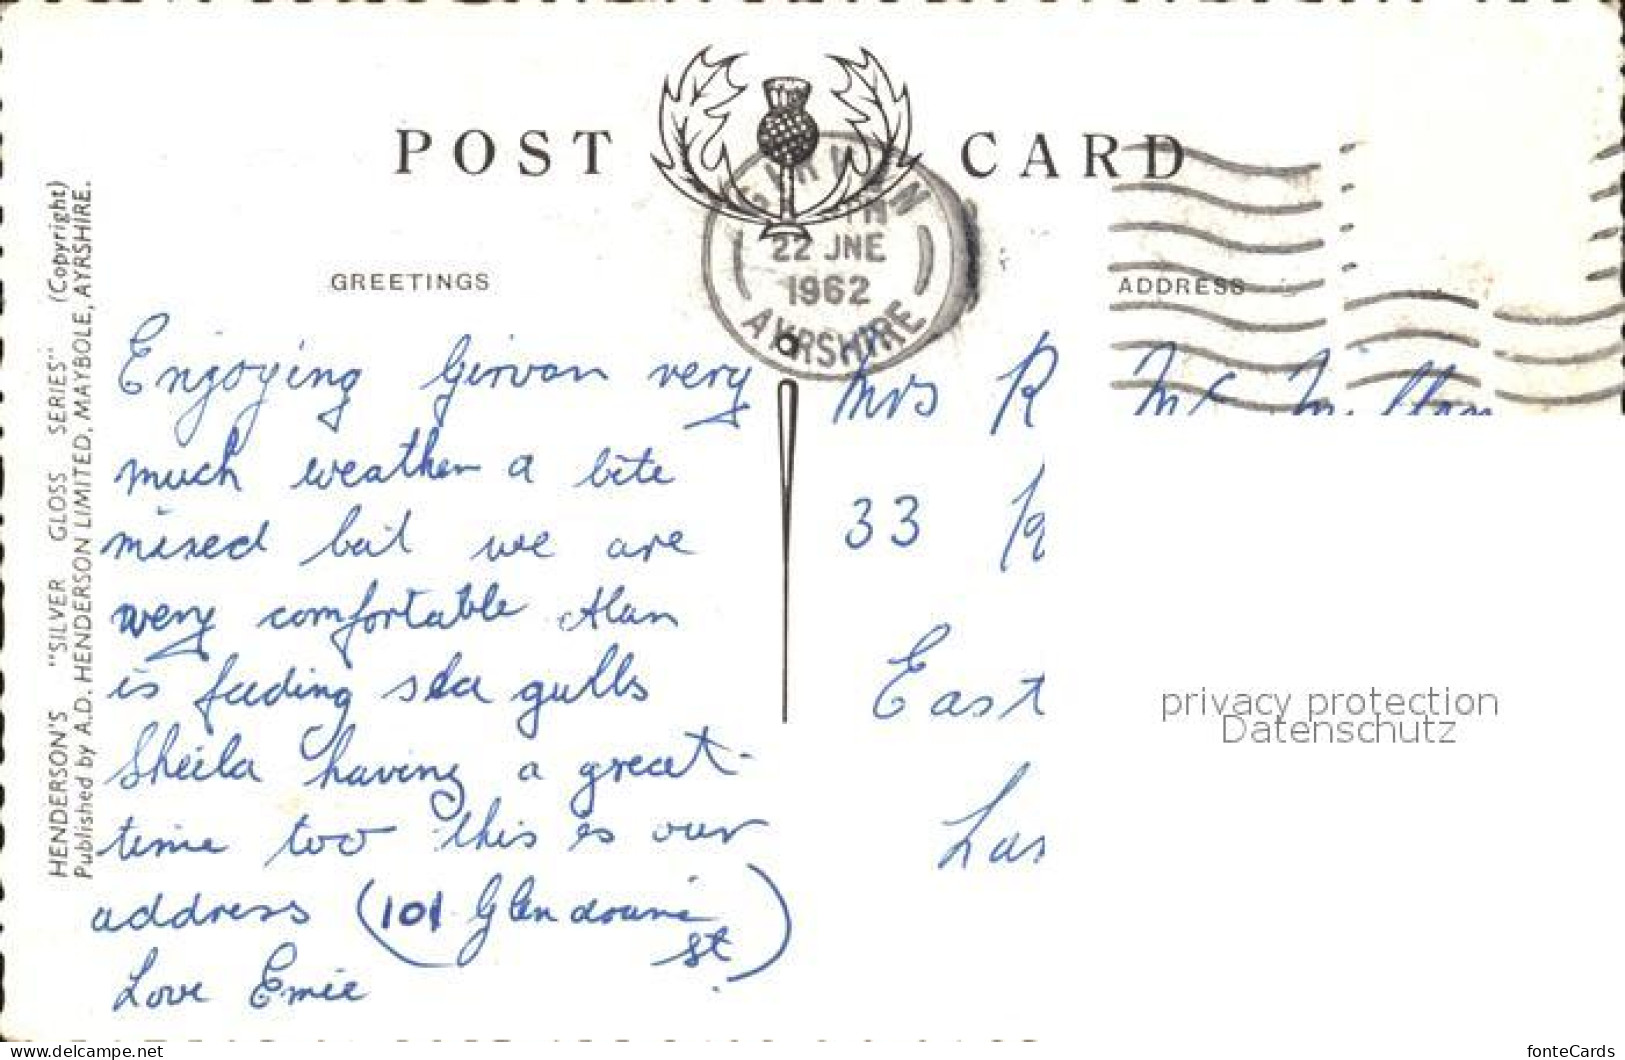 POST CARD
GIRVAN
22 JNE
1962
AYRSHIRE
GREETINGS
ADDRESS
HENDERSON'S "SILVER GLOSS SERIES" (Copyright)
Published by A.D. HENDERSON LIMITED, MAYBOLE, AYRSHIRE.
Enjoying Girvan very
much weather a bite
mixed but we are
very comfortable Alan
is feeding sea gulls
Sheila having a great
time too this is our
address (101 Glendoune
st.)
Love Emie
Mrs R McMillan
33
East
Las
privacy protection
Datenschutz
www.delcampe.net
fonteCards